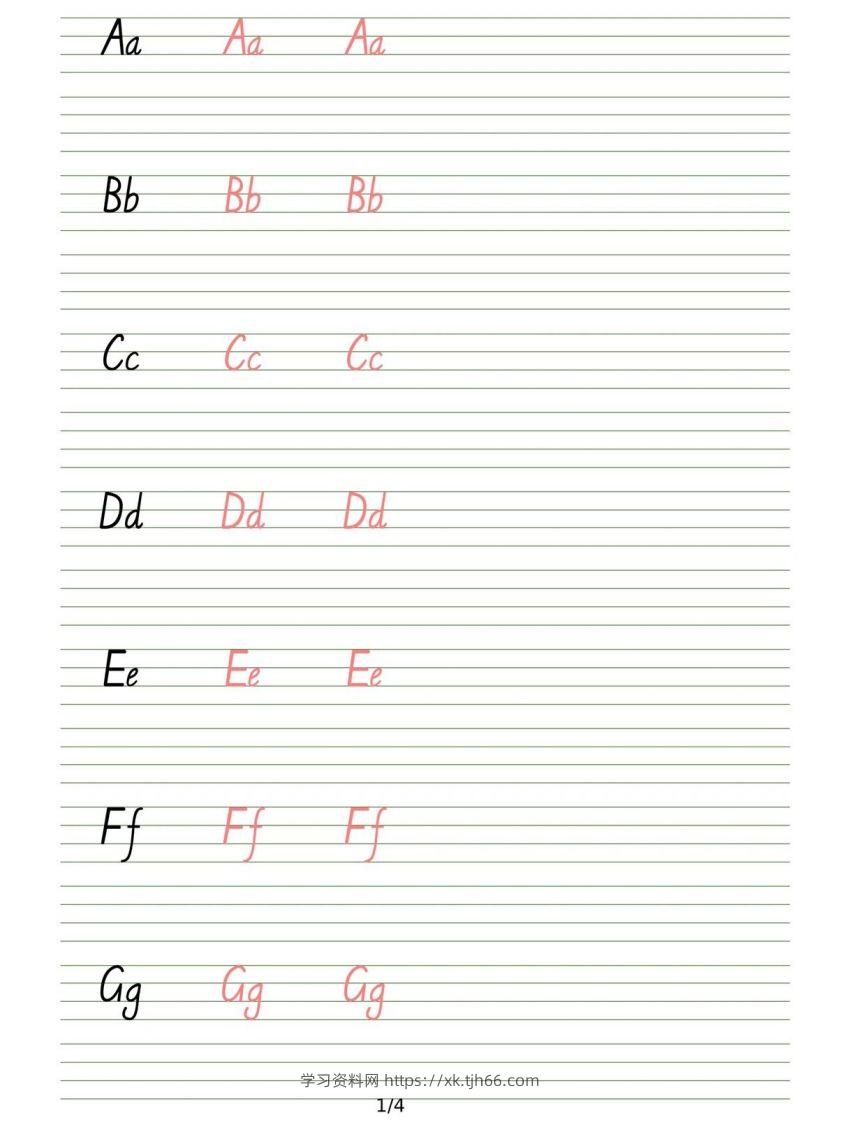 Aa Aa Aa
Bb Bb Bb
Cc Cc Cc
Dd Dd Dd
Ee Ee Ee
Ff Ff Ff
Gg Gg Gg
学习资料网 https://xk.tjh66.com
1/4